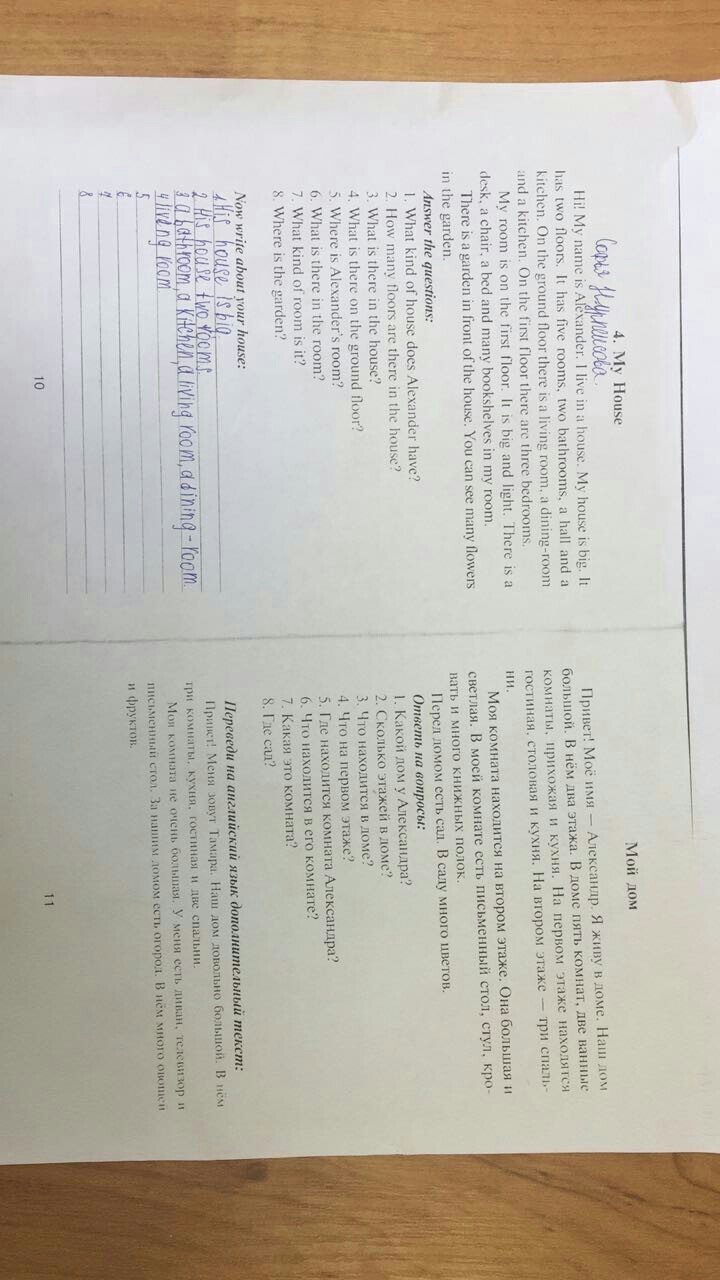 4. My House
Сафья Нурпеисова.
Hi! My name is Alexander. I live in a house. My house is big. It
has two floors. It has five rooms, two bathrooms, a hall and a
kitchen. On the ground floor there is a living room, a dining-room
and a kitchen. On the first floor there are three bedrooms.
My room is on the first floor. It is big and light. There is a
desk, a chair, a bed and many bookshelves in my room.
There is a garden in front of the house. You can see many flowers
in the garden.
Answer the questions:
1. What kind of house does Alexander have?
2. How many floors are there in the house?
3. What is there in the house?
4. What is there on the ground floor?
5. Where is Alexander's room?
6. What is there in the room?
7. What kind of room is it?
8. Where is the garden?
Now write about your house:
1 His house is big
2 His house two rooms
3 a bathroom, a kitchen, a living room, a dining-room.
4 living room
5
6
7
8
10
Мой дом
Привет! Моё имя — Александр. Я живу в доме. Наш дом
большой. В нём два этажа. В доме пять комнат, две ванные
комнаты, прихожая и кухня. На первом этаже находятся
гостиная, столовая и кухня. На втором этаже — три спаль-
ни.
Моя комната находится на втором этаже. Она большая и
светлая. В моей комнате есть письменный стол, стул, кро-
вать и много книжных полок.
Перед домом есть сад. В саду много цветов.
Ответь на вопросы:
1. Какой дом у Александра?
2. Сколько этажей в доме?
3. Что находится в доме?
4. Что на первом этаже?
5. Где находится комната Александра?
6. Что находится в его комнате?
7. Какая это комната?
8. Где сад?
Переведи на английский язык дополнительный текст:
Привет! Меня зовут Тамара. Наш дом довольно большой. В нём
три комнаты, кухня, гостиная и две спальни.
Моя комната не очень большая. У меня есть диван, телевизор и
письменный стол. За нашим домом есть огород. В нём много овощей
и фруктов.
11